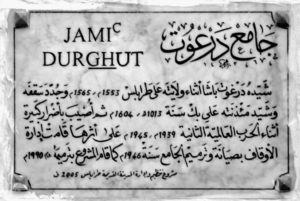 JAMIC
DURGHUT
جامع درغوت
شيده درغوت باشا أثناء ولايته على طرابلس 1553م، 1565م وجدد سقفه
وشيد مئذنته علي بك سنة 1013هـ 1604م ثم أصيب بأضرار كبيرة
أثناء الحرب العالمية الثانية 1939م، 1945م على أثرها قامت إدارة
الأوقاف بصيانة وترميم الجامع سنة 1946م كما قام المشروع بترميمه 1990م
مشروع تنظيم وإدارة المدينة القديمة طرابلس 2005 ف